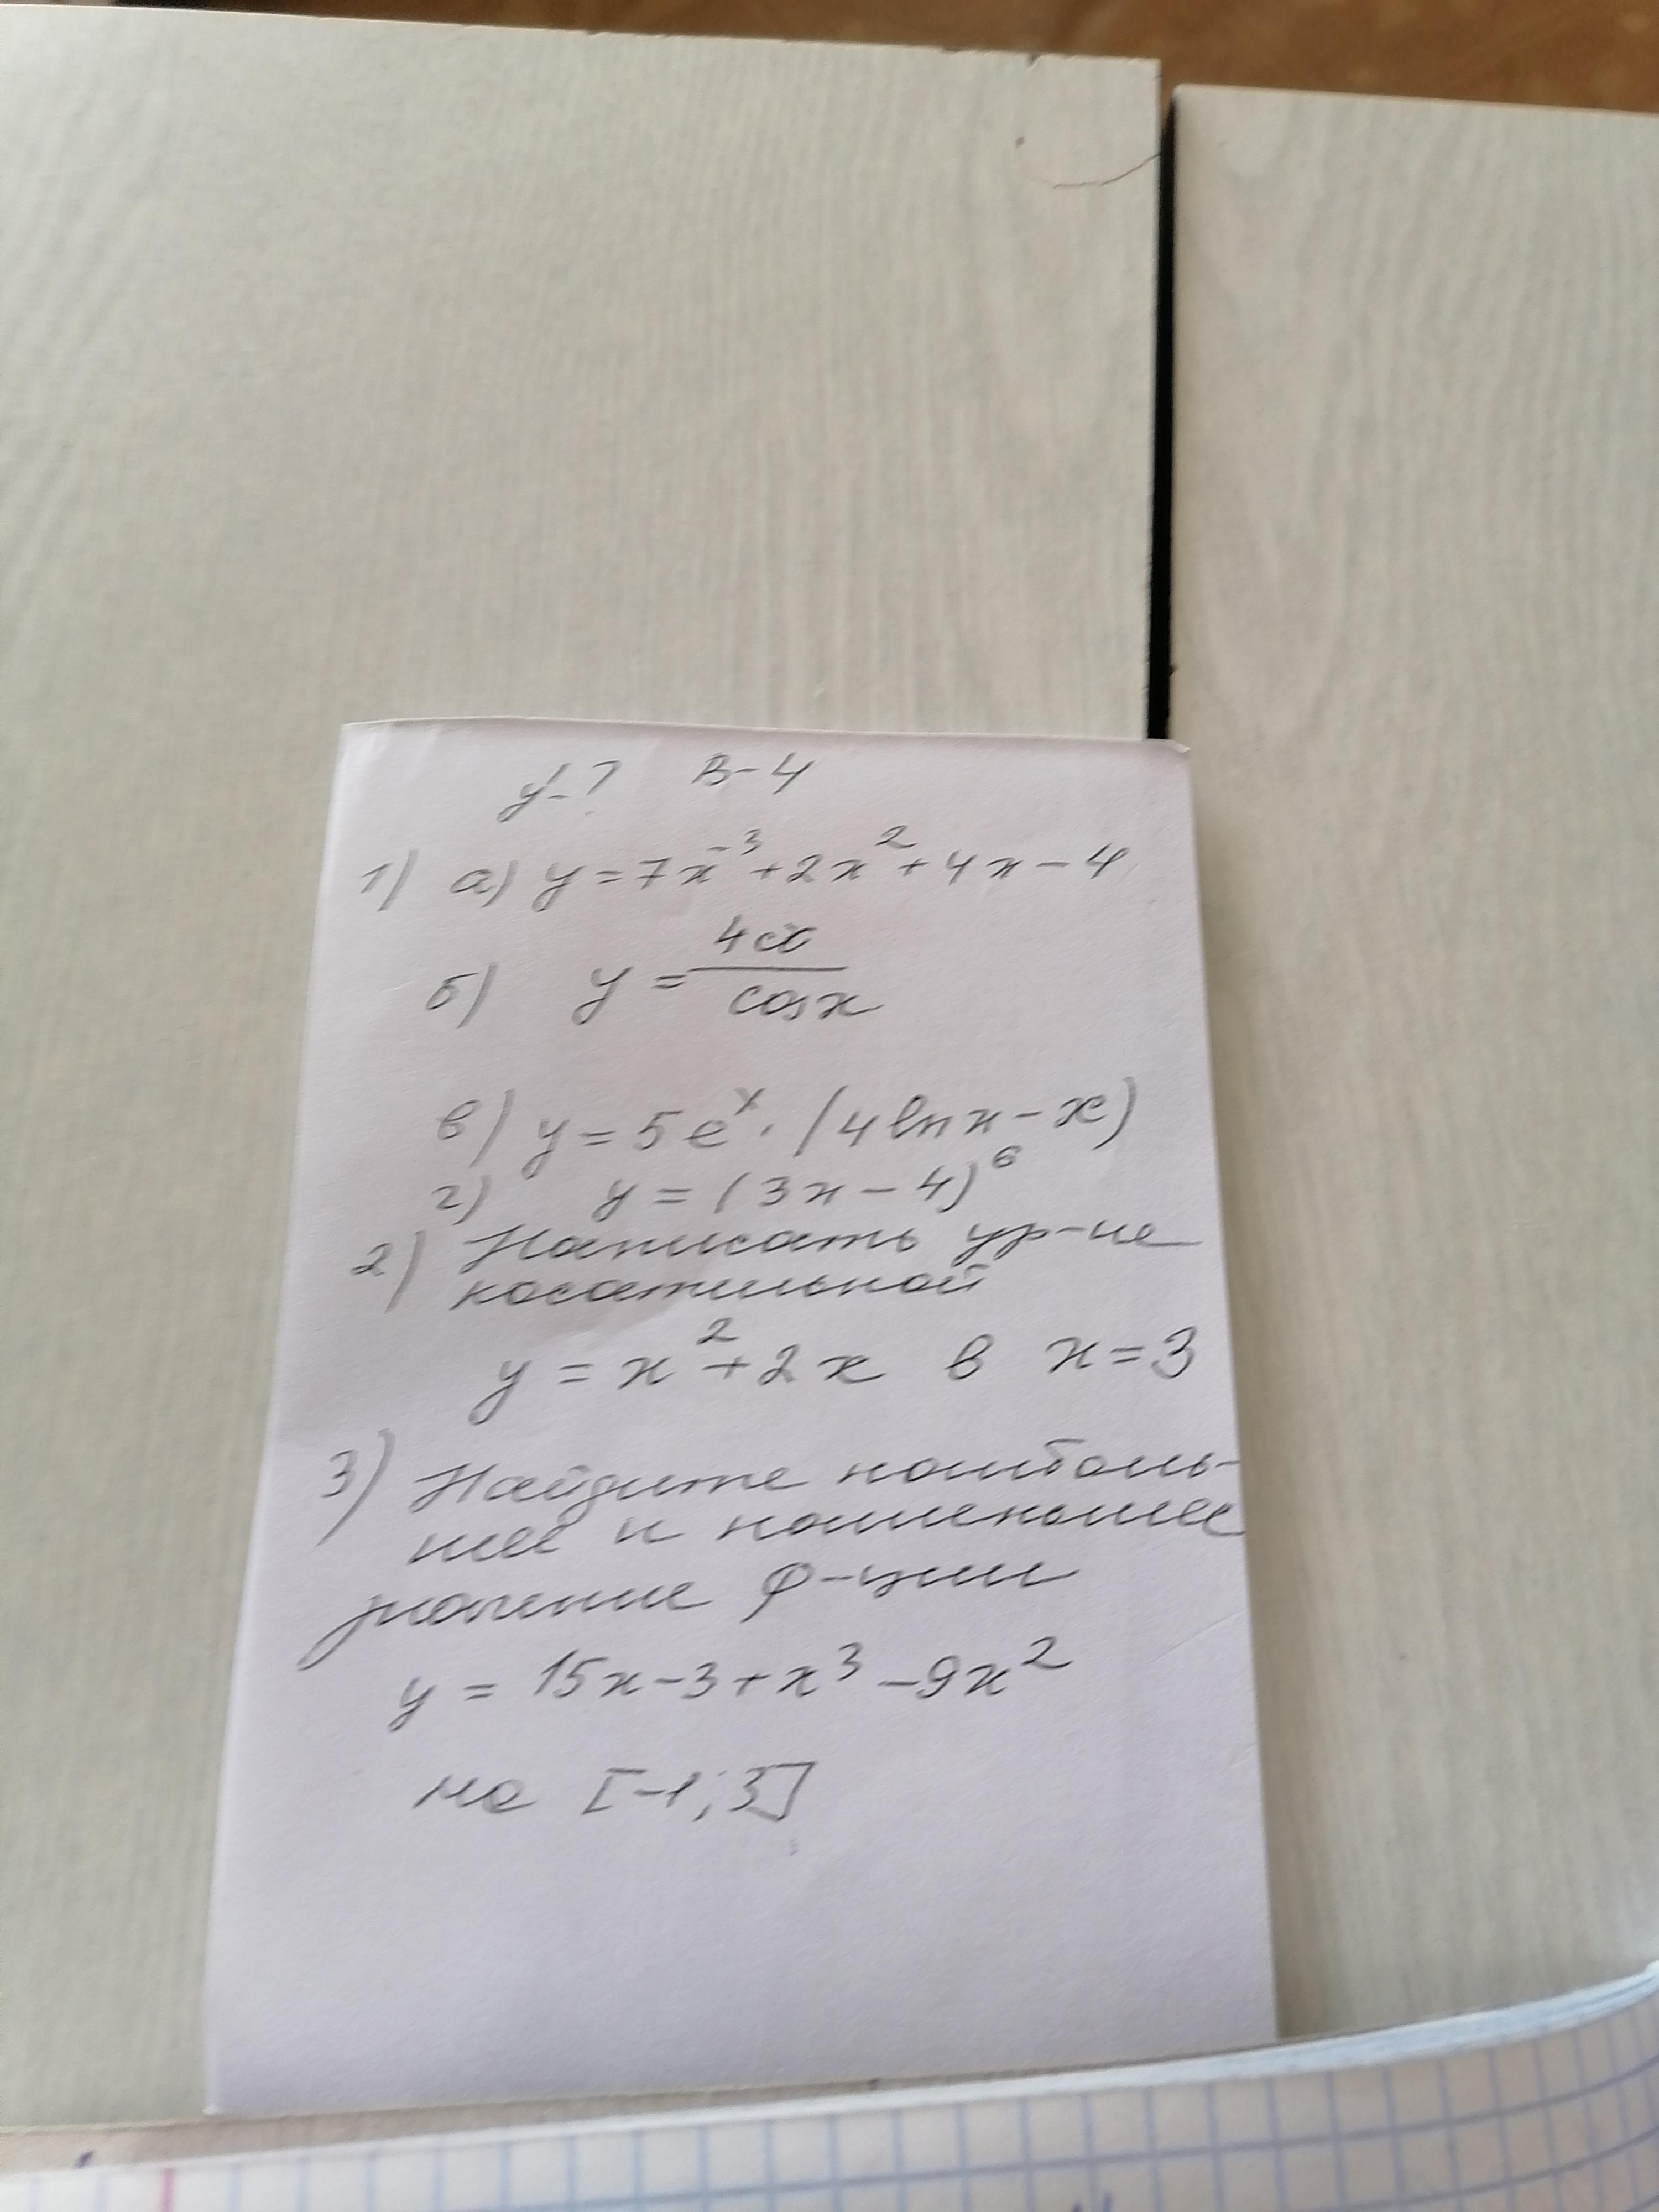 y'-? В-4
1) а) y = 7x⁻³ + 2x² + 4x - 4
б) y = 4x / cosx
в) y = 5eˣ · (4lnx - x)
г) y = (3x - 4)⁶
2) Написать ур-ие
касательной
y = x² + 2x в x = 3
3) Найдите наиболь-
шее и наименьшее
значение ф-ции
y = 15x - 3 + x³ - 9x²
на [-1; 3]